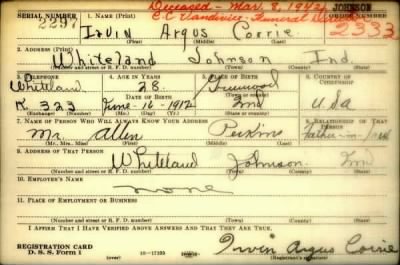 Deceased - Mar. 8, 1942 JOHNSON
SERIAL NUMBER 1. NAME (Print) C.C. Vandivier - Funeral ORDER NUMBER
Irvin Argus Corrie 2333
(First) (Middle) (Last)
2. ADDRESS (Print)
Whiteland Johnson Ind
(Number and street or R. F. D. number) (Town) (County) (State)
3. TELEPHONE 4. AGE IN YEARS 5. PLACE OF BIRTH 6. COUNTRY OF CITIZENSHIP
Whiteland 28 Greenwood
DATE OF BIRTH (Town or county)
R. 323 June-16-1912 Ind U.S.A
(Exchange) (Number) (Mo.) (Day) (Yr.) (State or country)
7. NAME OF PERSON WHO WILL ALWAYS KNOW YOUR ADDRESS 8. RELATIONSHIP OF THAT PERSON
Mr. Allen Perkins Father-in-law
(Mr., Mrs., Miss) (First) (Middle) (Last)
9. ADDRESS OF THAT PERSON
Whiteland Johnson Ind
(Number and street or R. F. D. number) (Town) (County) (State)
10. EMPLOYER'S NAME
none
11. PLACE OF EMPLOYMENT OR BUSINESS
(Number and street or R. F. D. number) (Town) (County) (State)
I AFFIRM THAT I HAVE VERIFIED ABOVE ANSWERS AND THAT THEY ARE TRUE.
REGISTRATION CARD Irvin Argus Corrie
D. S. S. Form 1 16-17105 (Registrant's signature)